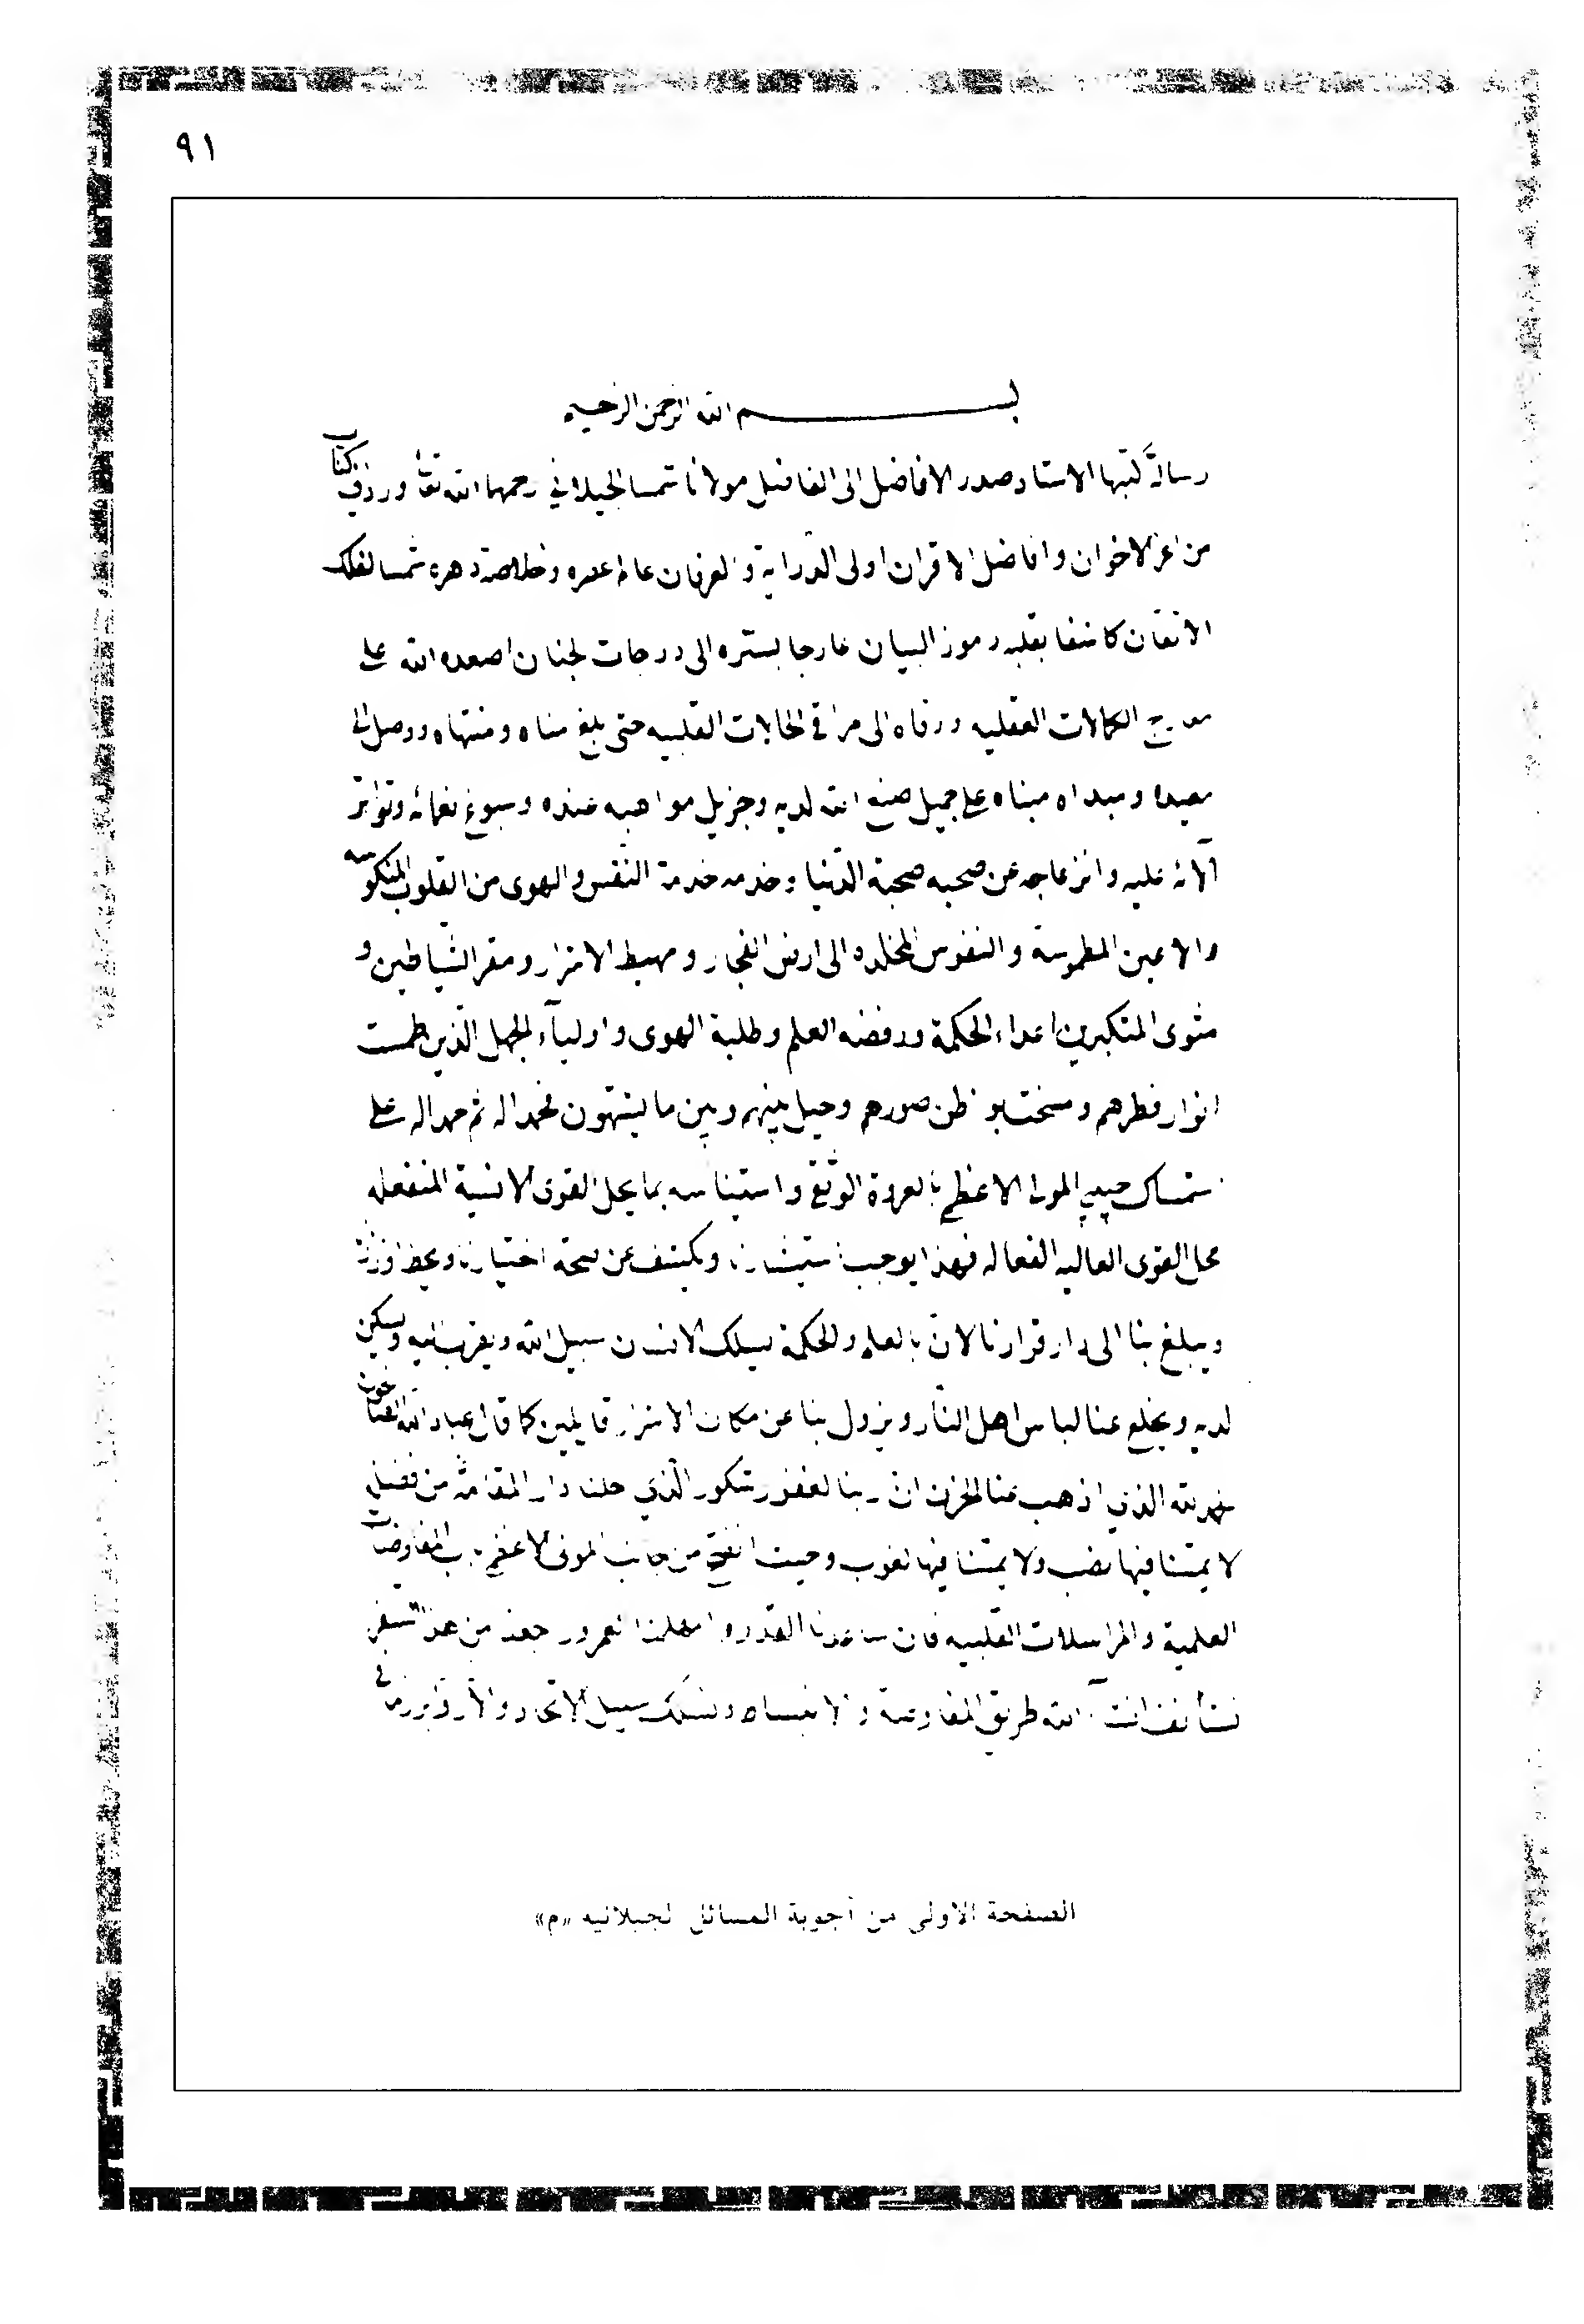 ٩١
بسم الله الرحمن الرحيم
رسالة كتبها الاستاد صدر الافاضل الى الفاضل مولانا شمسا الجيلاني رحمهما الله تعا ورد في كتاب
من اعز الاخوان وافاضل الاقران اولى الدراية والعرفان عالم عصره وخلاصة دهره شمسا لفلك
الاتقان كاشفا بقلبه رموز البيان عارجا بستره الى درجات لجنان اصعده الله على
معارج الكمالات العقليه ورقاه الى مراقي الحالات القلبيه حتى بلغ مناه ومنتهاه ووصل الى
معيده ومبداه مبناه على جميل صنع الله لديه وجزيل مواهبه عنده وسبوغ نعمائه وتواتر
آلائه عليه وانزعاجه عن صحبه صحبة الدنيا وخدمه خدمة النفس والهوى من القلوب المنكوسه
والاعين المطموسة والنفوس المخلده الى ارض الفجار ومهبط الاشرار ومقر الشياطين و
مثوى المتكبرين اعداء الحكمة ورفضه العلم وطلبة الهوى واولياء الجهل الذين طمست
انوار فطرهم ومسخت بواطن صورهم وحيل بينهم وبين ما يشتهون فحمدا له ثم حمدا له على
استمساك حبيبي المولى الاعظم بالعروة الوثقى واستيناسه بما يحل القوى الانسية المنفعله
محل القوى العاليه الفعاله فهذا يوجب ويكشف عن صحة اختيارنا
ويبلغ بنا الى دار قرارنا لان بالعلم والحكمة يسلك الانسان سبيل الله ويقرب اليه ويسكن
لديه ويخلع عنا لباس اهل النار ويزول بنا عن مكان الاشرار قايلين كما قال عباد الله
الحمد لله الذي اذهب عنا الحزن ان ربنا لغفور شكور الذي حلنا دار المقامة من فضله
لا يمسنا فيها نصب ولا يمسنا فيها لغوب وحيث انفتح من جانب المولى الاعظم باب المفاوضات
العلمية والمراسلات القلبيه فان ساعدنا القدر وامهلنا العمر ورجعنا من هذا السفر
نستأنف انشآء الله طريق المفاوضة والانبساط ونسلك سبيل الاتحاد
الصفحة الاولى من أجوبة المسائل لجيلانيه «م»